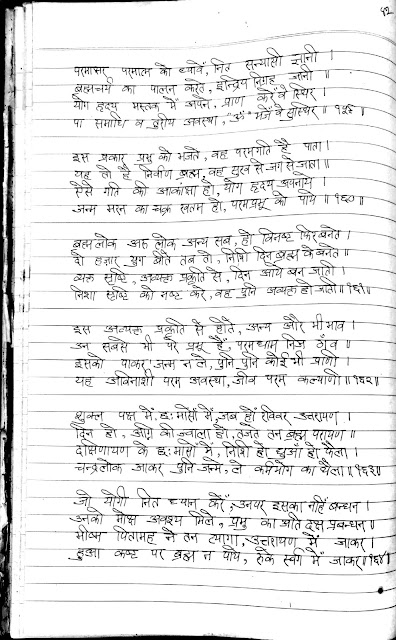 ४२
परमाक्षर परमात्म को ध्यावें, नित सन्यासी ज्ञानी ।
ब्रह्मचर्य का पालन करते, इन्द्रिय निग्रह जानी ॥
योग हृदय मस्तक में अपने, प्राण करें वे स्थिर ।
पा समाधि व तुरीय अवस्था, "ॐ" भजें वे सुस्थिर ॥१५९॥
इस प्रकार प्रभु को भजते, वह परमगति है पाता ।
यह तो है निर्वाण ब्रह्म, वह सुख से जग से जाता ॥
ऐसे गति की आकांक्षा हो, योग हृदय अपनाये ।
जन्म मरन का चक्र खतम हो, परमप्रभू को पाये ॥१६०॥
ब्रह्मलोक अरु लोक अन्य सब, हों विनष्ट फिर बनते ।
दो हज़ार युग बीते तब तो, निशि दिन ब्रह्म के बनते ॥
व्यक्त सृष्टि, अव्यक्त प्रकृति से, दिन आये बन जाती ।
निशा सृष्टि को नष्ट करे, वह पुनि अव्यक्त हो जाती ॥१६१॥
इस अव्यक्त प्रकृति से होते, अन्य और भी भाव ।
उन सबसे भी परे प्रभू हैं, परमधाम निज ठाँव ॥
इसको पाकर जन्म न ले, पुनि पुनि कोई भी प्राणी ।
यह अविनाशी परम अवस्था, जीव परम कल्याणी ॥१६२॥
शुक्ल पक्ष में छः मासों में, जब हों रविवर उत्तरायण ।
दिन हो, अग्नि की ज्वाला हो, तजते तन ब्रह्म परायण ॥
दक्षिणायण के छः मासों में, निशि हो धुआँ हो फैला ।
चन्द्रलोक जाकर पुनि जन्म, ले कर्मयोग का थैला ॥१६३॥
जो योगी नित ध्यान करें, उनपर इसका नहिं बन्धन ।
उनको मोक्ष अवश्य मिले, प्रभु का अति दक्ष प्रबन्धन ॥
भीष्म पितामह ने तन त्यागा, उत्तरायण में जाकर ।
हुआ कष्ट पर ब्रह्म न पाये, रुके स्वर्ग में जाकर ॥१६४॥